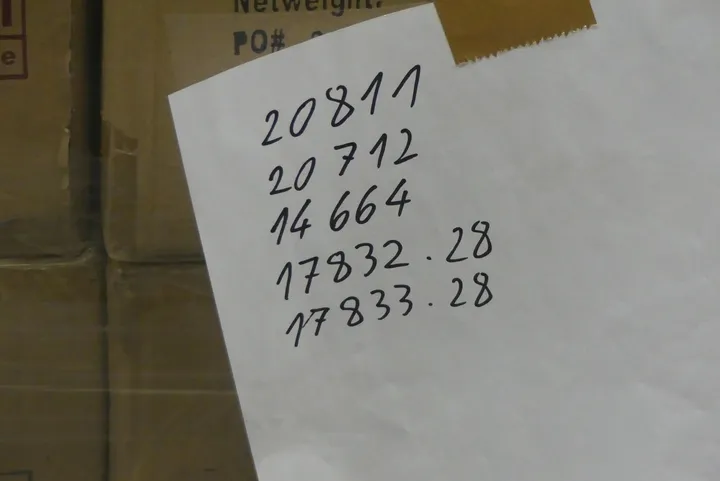 Netweight:
PO#
20811
20712
14664
17832.28
17833.28